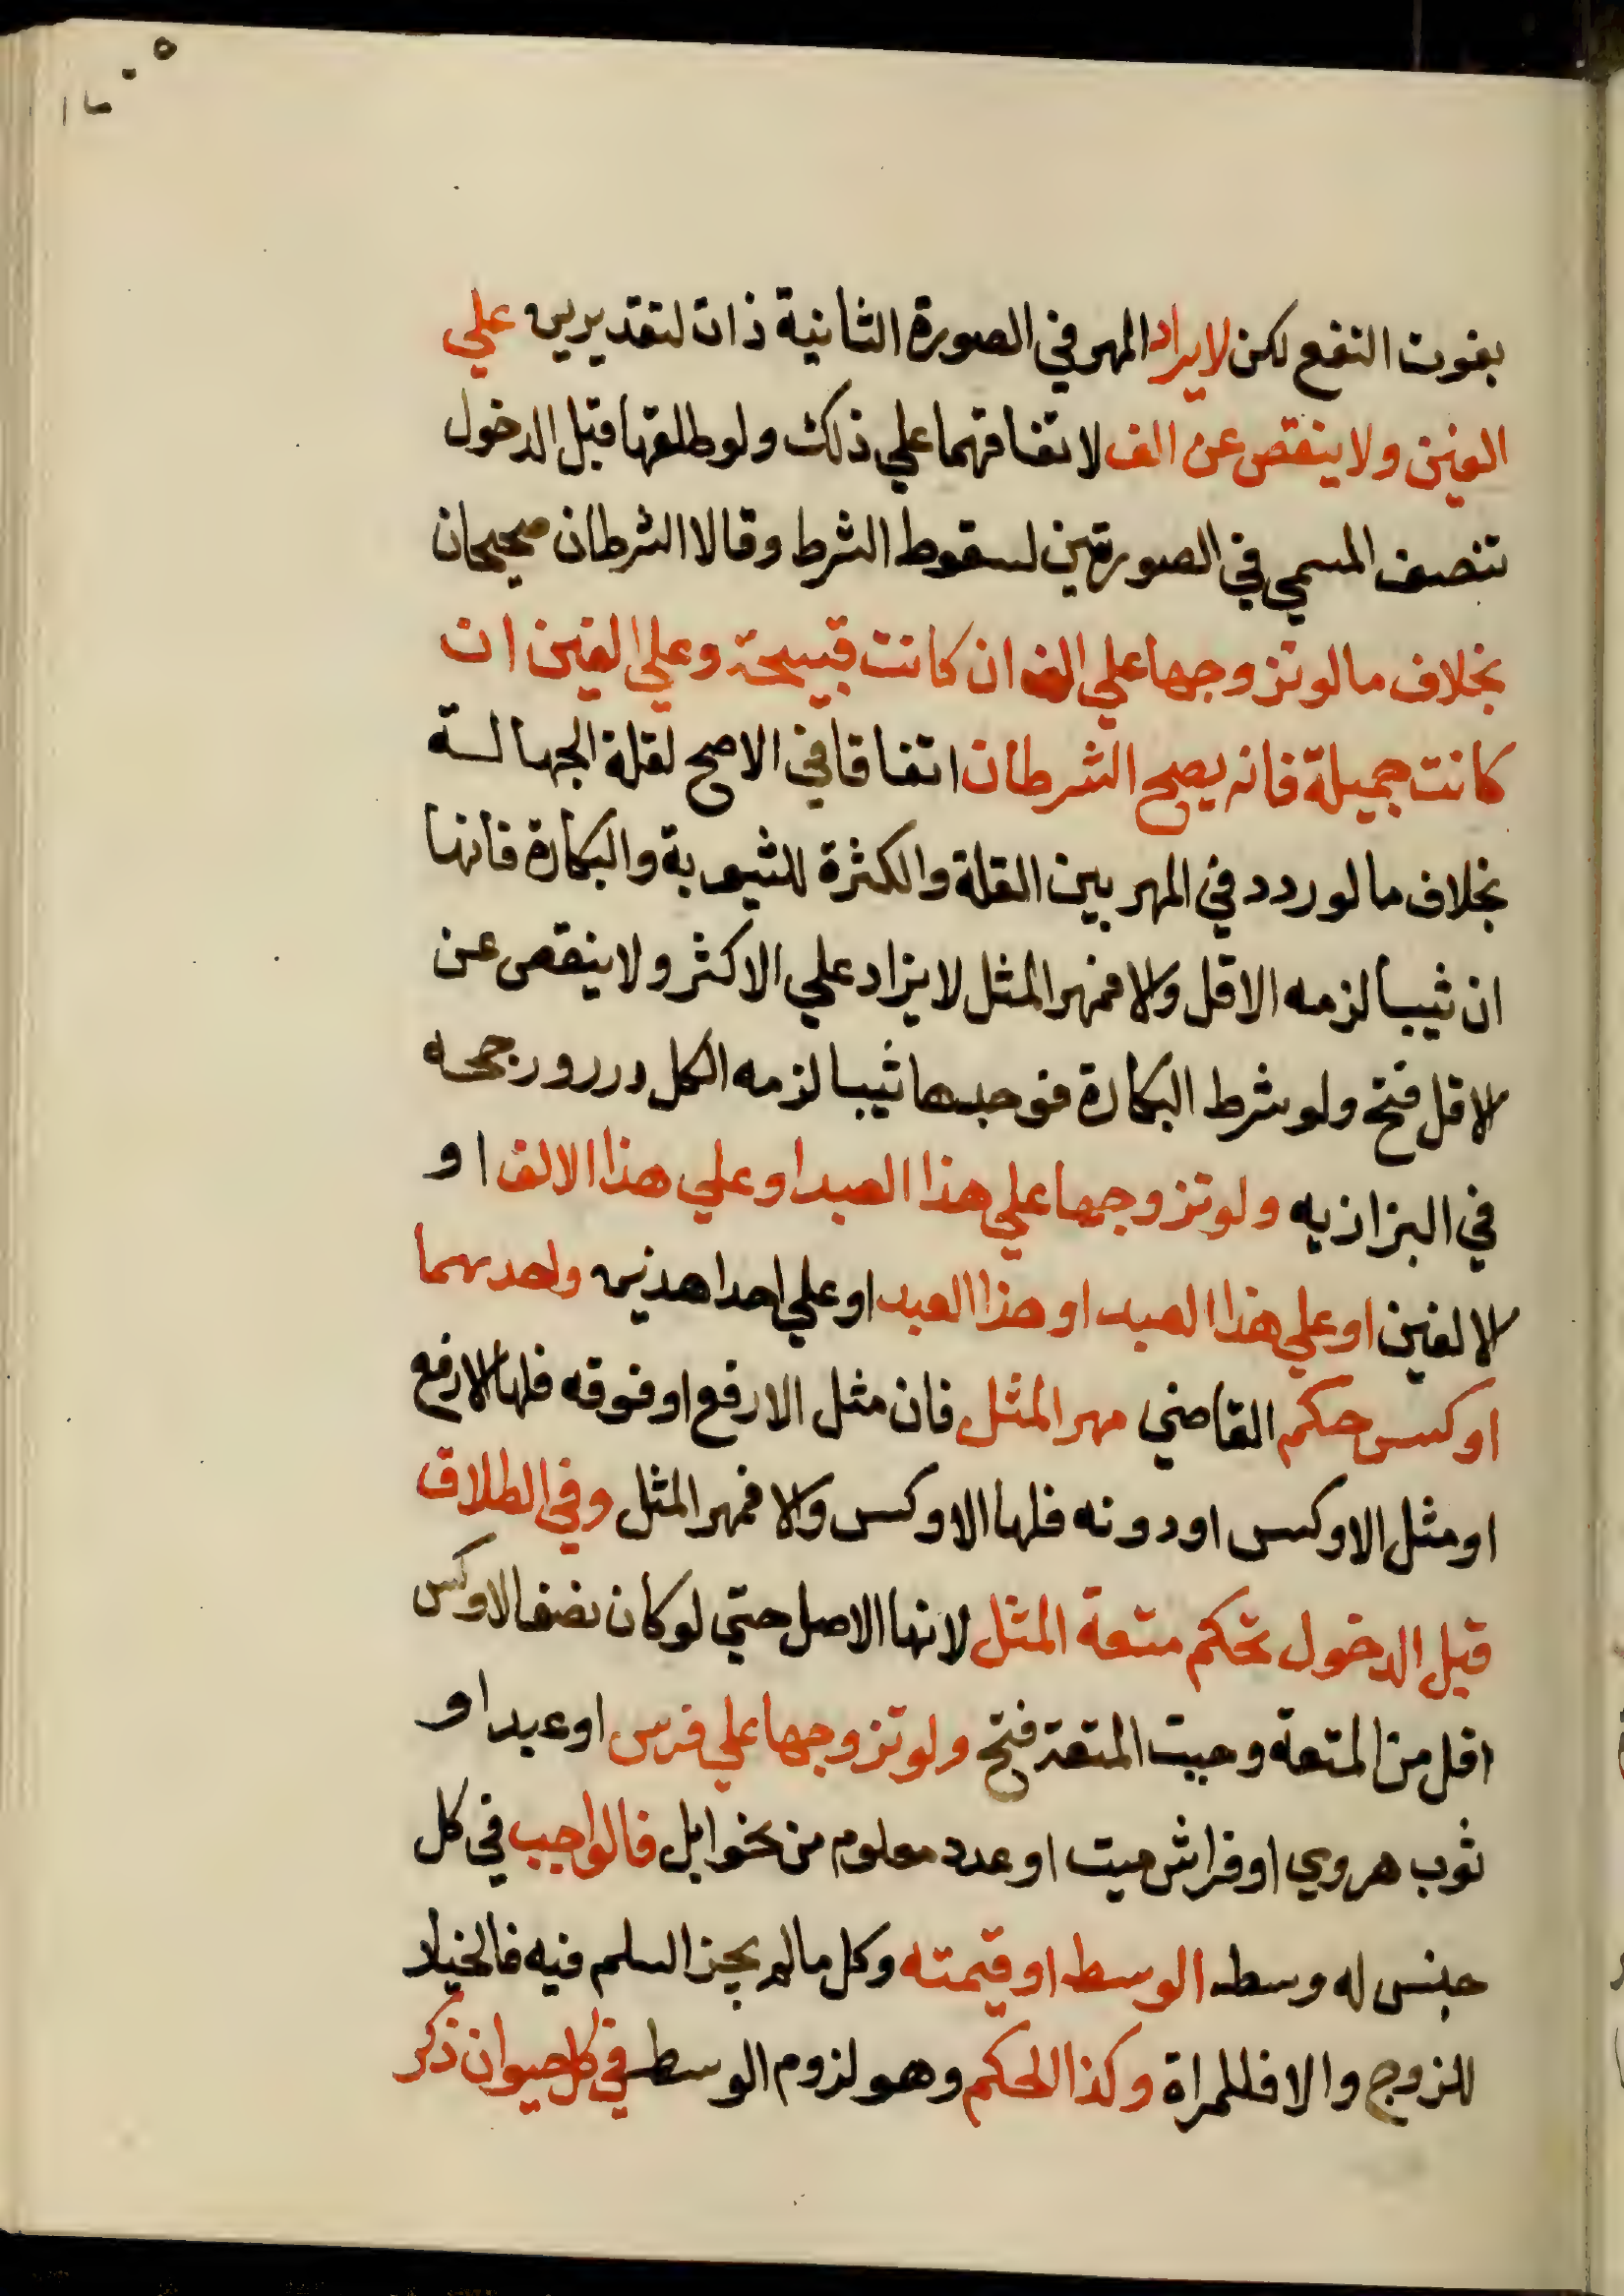 بفوت النفع لكن لا يراد المهر في الصورة الثانية ذات لتقديرين علي
الفين ولا ينقص عن الف لاتفاقهما علي ذلك ولو طلقها قبل الدخول
تنصف المسمي في الصورتين لسقوط الشرط وقالا الشرطان صحيحان
بخلاف ما لو تزوجها علي الف ان كانت قبيحة وعلي الفين ان
كانت جميلة فانه يصح الشرطان اتفاقا في الاصح لقلة الجهالة
بخلاف ما لو ردد في المهر بين القلة والكثرة للثيوبة والبكارة فانها
ان ثيبا لزمه الاقل والا فمهر المثل لا يزاد علي الاكثر ولا ينقص عن
الاقل فتح ولو شرط البكارة فوجدها ثيبا لزمه الكل درر ورجحه
في البزازيه ولو تزوجها علي هذا العبد او علي هذا الالف او
الالفين او علي هذا العبد او هذا العبد او علي احد اهذين واحدهما
اوكس حكم القاضي مهر المثل فان مثل الارفع او فوقه فلها الارفع
او مثل الاوكس او دونه فلها الاوكس والا فمهر المثل وفي الطلاق
قبل الدخول تحكم متعة المثل لانها الاصل حتي لو كان نصف الاوكس
اقل من المتعة وجبت المتعة فتح ولو تزوجها علي فرس او عبد او
ثوب هروي او فراش ميت او عدد معلوم من نحو ابل فالواجب في كل
جنس له وسط الوسط او قيمته وكل ما لم يجز السلم فيه فالخيار
للزوج والا فللمراة وكذا الحكم وهو لزوم الوسط في كل حيوان ذكر